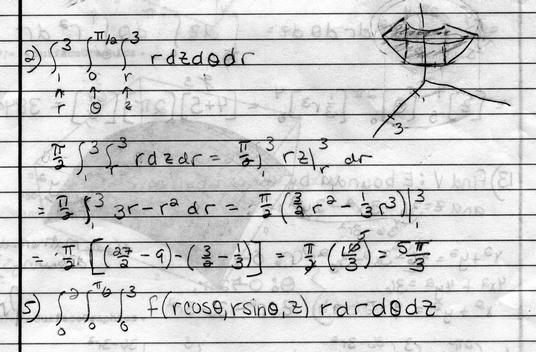 2) ∫₁³ ∫₀^π/2 ∫ᵣ³ r dz dθ dr
↑ ↑ ↑
r θ z
3
π/2 ∫₁³ ∫ᵣ³ r dz dr = π/2 ∫₁³ rz |ᵣ³ dr
= π/2 ∫₁³ 3r - r² dr = π/2 (3/2 r² - 1/3 r³) |₁³
= π/2 [(27/2 - 9) - (3/2 - 1/3)] = π/2 (10/3) = 5π/3
5
5) ∫₀² ∫₀^π/6 ∫₀³ f(rcosθ, rsinθ, z) r dr dθ dz